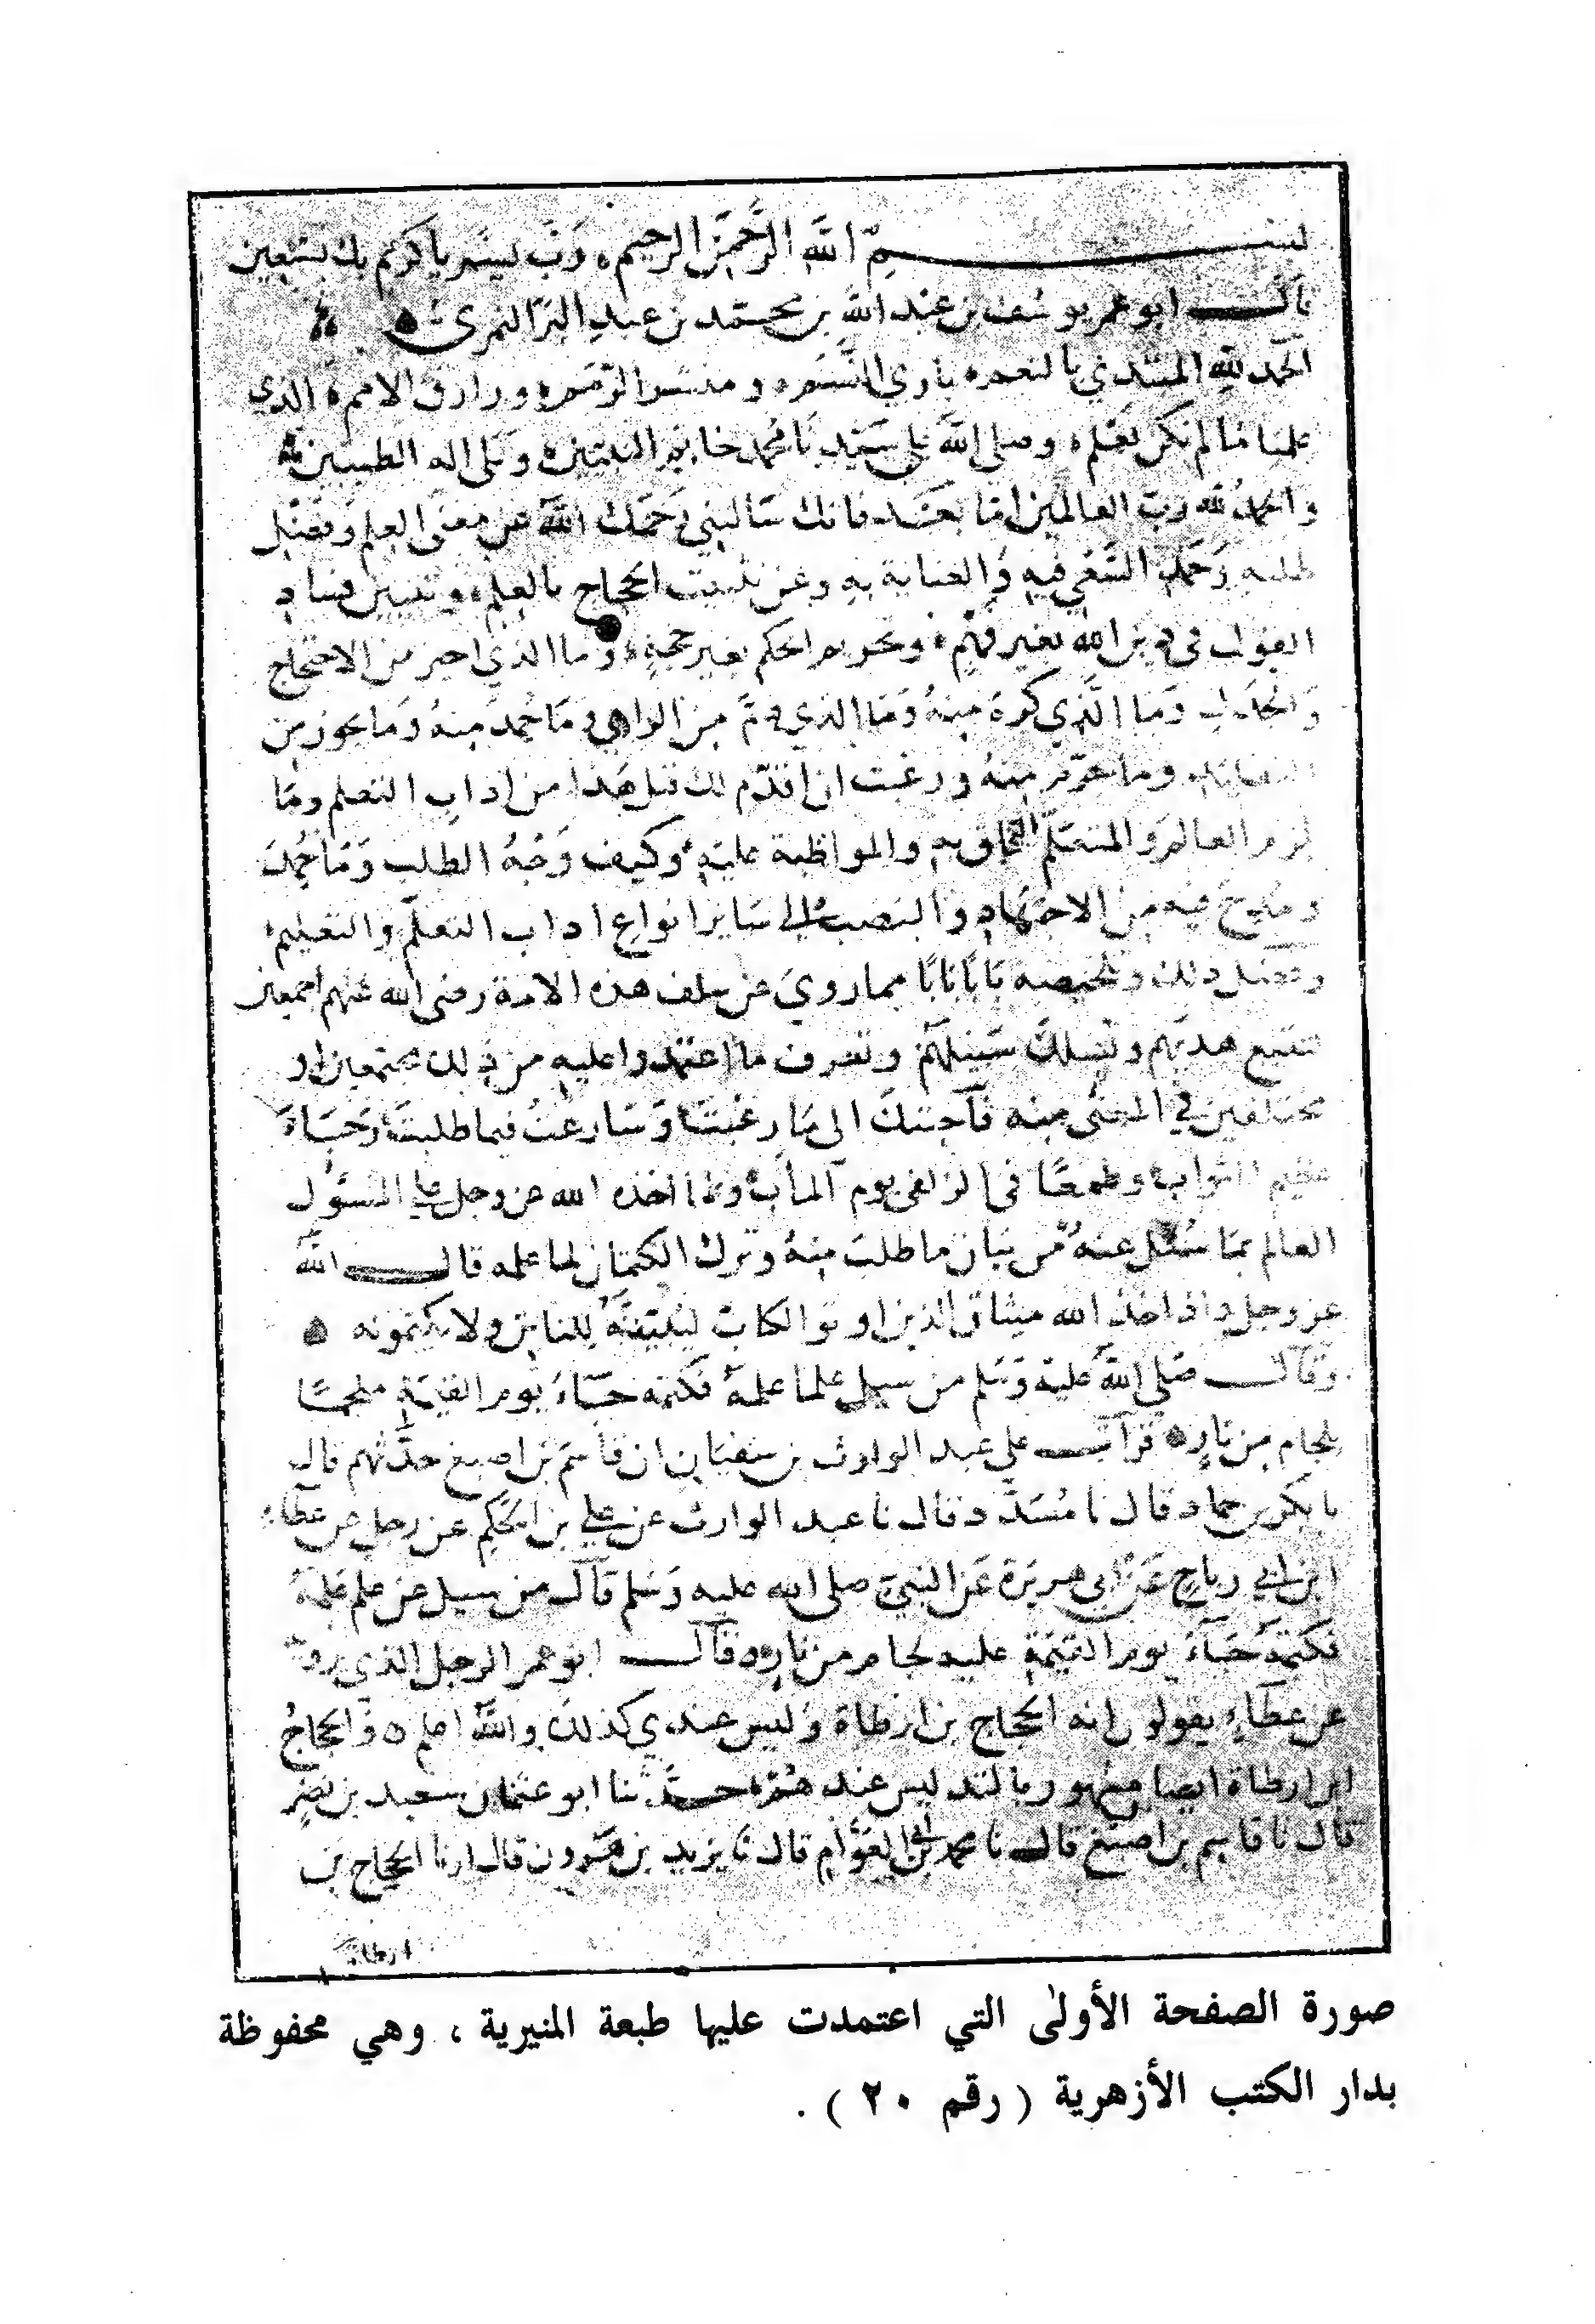 بسم الله الرحمن الرحيم، رَبّ يسر يا كريم بك نستعين
قال ابو عمر يوسف بن عبد الله بن محمد بن عبد البر النمرى
الحمد لله المبتدي بالنعم، باري النسم، ومنشر الرمم، ورازق الامم، الذي
علمنا ما لم نكن نعلم، وصلى الله على سيدنا محمد خاتم النبيين، وعلى اله الطيبين
والحمد لله رب العالمين اما بعد فانك سالتني رحمك الله عن معنى العلم وفضل
طلبه وحمد السعي فيه والعناية به وعن تثبيت الحجاج بالعلم، وتبيين فساد
القول في دين الله بغير فهم، وتحريم الحكم بغير حجة، وما الذي اجيز من الاحتجاج
والجدل وما الذي كره منه وما الذي ذم من الراي وما حمد منه وما يجوز من
وما حرم منه ورغبت ان اقدم لك قبل هذا من اداب التعلم وما
يلزم العالم والمتعلم التخلق به والمواظبة عليه، وكيف وجه الطلب وما حمد
ومدح فيه من الاجتهاد والنصب الى ساير انواع اداب التعلم والتعليم،
وفضل ذلك وتلخيصه بابا بابا مما روي عن سلف هذه الامة رضى الله عنهم اجمعين
لتتبع هديهم وتسلك سبيلهم وتعرف ما اعتمدوا عليه من ذلك مجتمعين او
مختلفين في المعنى منه فاجبتك الى ما رغبت وسارعت فيما طلبت رجاء
عظيم الثواب وطمعا في الزلفى يوم المآب، ولما اخذه الله عز وجل على المسؤل
العالم بما سئل عنه من بيان ما طلب منه وترك الكتمان لما علمه قال الله
عز وجل واذ اخذ الله ميثاق الذين اوتو الكتاب ليبيننه للناس ولا يكتمونه
وقال صلى الله عليه وسلم من سيل علما علمه فكتمه جاء يوم القيمة ملجما
بلجام من نار، قرات على عبد الوارث بن سفيان ان قاسم بن اصبغ حدثهم قال
نا بكر بن حماد قال نا مسدد قال نا عبد الوارث عن علي بن الحكم عن رجل عن عطاء
ابن ابي رباح عن ابي هريرة عن النبي صلى الله عليه وسلم قال من سيل عن علم علمه
فكتمه جاء يوم القيمة عليه لجام من نار، قال ابو عمر الرجل الذي
عن عطاء يقولون انه الحجاج بن ارطاة وليس عندي كذلك والله اعلم، والحجاج
ابن ارطاة ايضا مشهور بالتدليس عندهم، حدثنا ابو عثمان سعيد بن نصر
قال نا قاسم بن اصبغ قال نا محمد بن ابي العوام قال نا يزيد بن هرون قال ارنا الحجاج بن
ارطاة
صورة الصفحة الأولىٰ التي اعتمدت عليها طبعة المنيرية ، وهي محفوظة
بدار الكتب الأزهرية ( رقم ٢٠ ) .